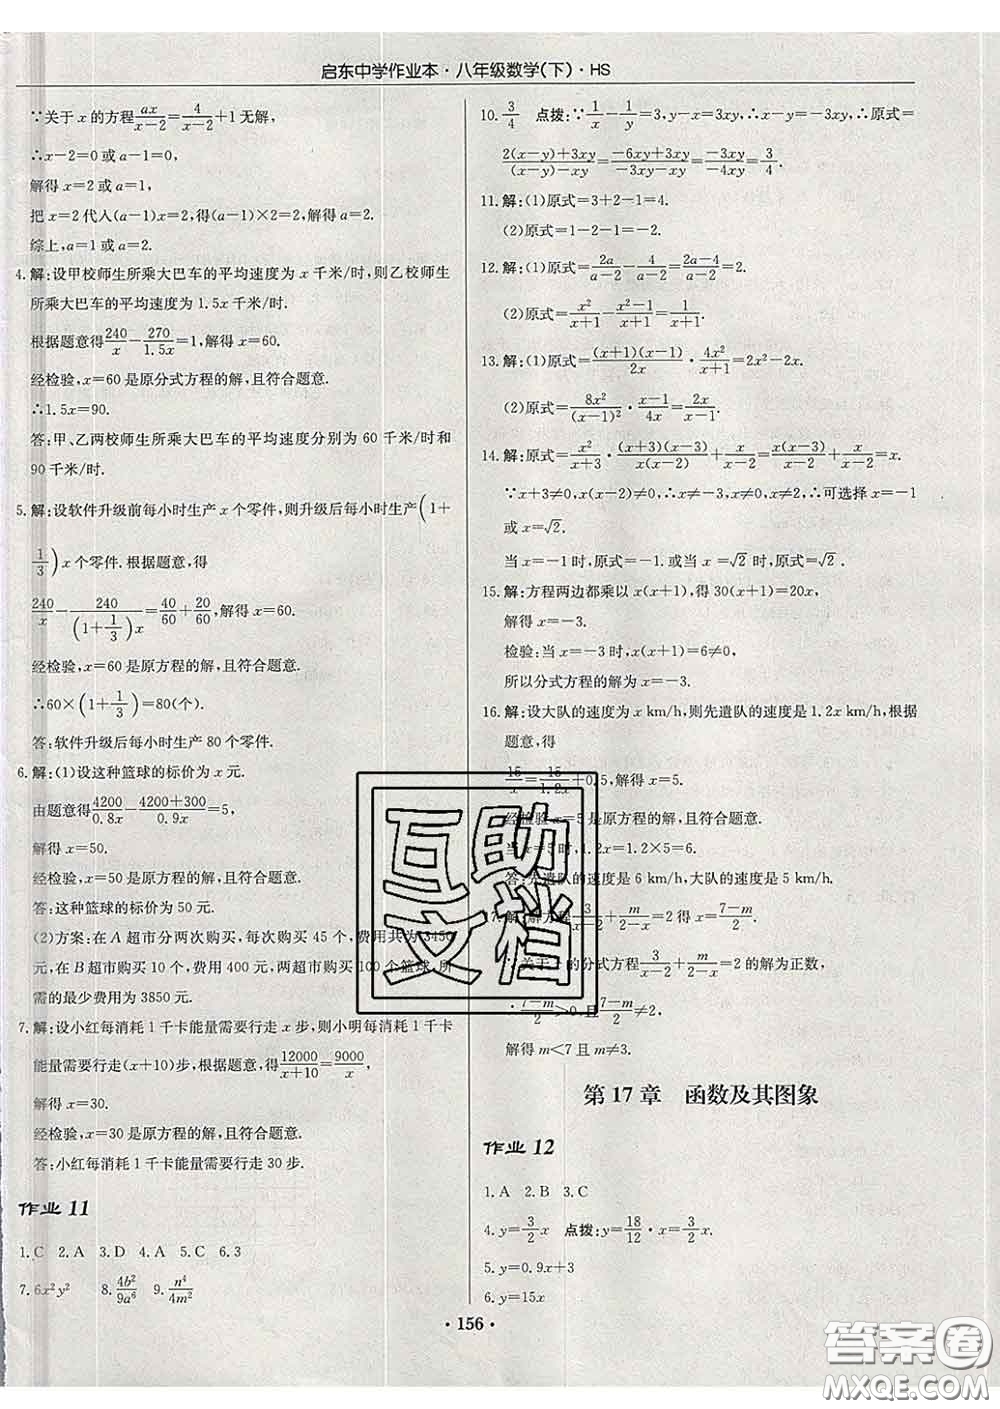 启东中学作业本·八年级数学(下)·HS
∵关于 x 的方程 ax/(x-2)=4/(x-2)+1 无解,
∴x-2=0 或 a-1=0,
解得 x=2 或 a=1,
把 x=2 代入(a-1)x=2,得(a-1)×2=2,解得 a=2.
综上,a=1 或 a=2.
4.解:设甲校师生所乘大巴车的平均速度为 x 千米/时,则乙校师生
所乘大巴车的平均速度为 1.5x 千米/时.
根据题意得 240/x-270/1.5x=1,解得 x=60.
经检验,x=60 是原分式方程的解,且符合题意.
∴1.5x=90.
答:甲、乙两校师生所乘大巴车的平均速度分别为 60 千米/时和
90 千米/时.
5.解:设软件升级前每小时生产 x 个零件,则升级后每小时生产(1+
1/3)x 个零件.根据题意,得
240/x-240/((1+1/3)x)=40/60+20/60,解得 x=60.
经检验,x=60 是原方程的解,且符合题意.
∴60×(1+1/3)=80(个).
答:软件升级后每小时生产 80 个零件.
6.解:(1)设这种篮球的标价为 x 元.
由题意得 4200/0.8x-(4200+300)/0.9x=5,
解得 x=50.
经检验,x=50 是原方程的解,且符合题意.
答:这种篮球的标价为 50 元.
(2)方案:在 A 超市分两次购买,每次购买 45 个,费用共为 3450
元,在 B 超市购买 10 个,费用 400 元,两超市购买 100 个篮球,所
需的最少费用为 3850 元.
7.解:设小红每消耗 1 千卡能量需要行走 x 步,则小明每消耗 1 千卡
能量需要行走(x+10)步,根据题意,得 12000/(x+10)=9000/x,
解得 x=30.
经检验,x=30 是原方程的解,且符合题意.
答:小红每消耗 1 千卡能量需要行走 30 步.
作业 11
1.C 2.A 3.D 4.A 5.C 6.3
7.6x²y² 8.4b²/9a⁶ 9.n⁴/4m²
10.3/4 点拨:∵1/x-1/y=3,y-x=3xy,∴x-y=-3xy,∴原式=
(2(x-y)+3xy)/((x-y)-xy)=(-6xy+3xy)/(-3xy-xy)=-3xy/-4xy=3/4.
11.解:(1)原式=3+2-1=4.
(2)原式=1-2-1=-2.
12.解:(1)原式=2a/(a-2)-4/(a-2)=(2a-4)/(a-2)=2.
(2)原式=x²/(x+1)-(x²-1)/(x+1)=1/(x+1).
13.解:(1)原式=(x+1)(x-1)/2x·4x²/(x+1)=2x²-2x.
(2)原式=8x²/(x-1)²·(x-1)/4x=2x/(x-1).
14.解:原式=x²/(x+3)·(x+3)(x-3)/x(x-2)+x/(x-2)=x(x-3)/(x-2)+x/(x-2)=x.
∵x+3≠0,x(x-2)≠0,∴x≠-3,x≠0,x≠2,∴可选择 x=-1
或 x=√2.
当 x=-1 时,原式=-1.或当 x=√2 时,原式=√2.
15.解:方程两边都乘以 x(x+1),得 30(x+1)=20x,
解得 x=-3.
检验:当 x=-3 时,x(x+1)=6≠0,
所以分式方程的解为 x=-3.
16.解:设大队的速度为 x km/h,则先遣队的速度是 1.2x km/h,根据
题意,得
15/x=15/1.2x+0.5,解得 x=5.
经检验 x=5 是原方程的解,且符合题意.
当 x=5 时,1.2x=1.2×5=6.
答:先遣队的速度是 6 km/h,大队的速度是 5 km/h.
17.解:解方程 3/(x-2)+m/(2-x)=2 得 x=(7-m)/2.
∵关于 x 的分式方程 3/(x-2)+m/(2-x)=2 的解为正数,
∴(7-m)/2>0,且(7-m)/2≠2,
解得 m<7 且 m≠3.
第 17 章 函数及其图象
作业 12
1.A 2.B 3.C
4.y=3/2x 点拨:y=18/12·x=3/2x.
5.y=0.9x+3
6.y=15x
·156·
互助
文档
答案卷
MXQE.COM